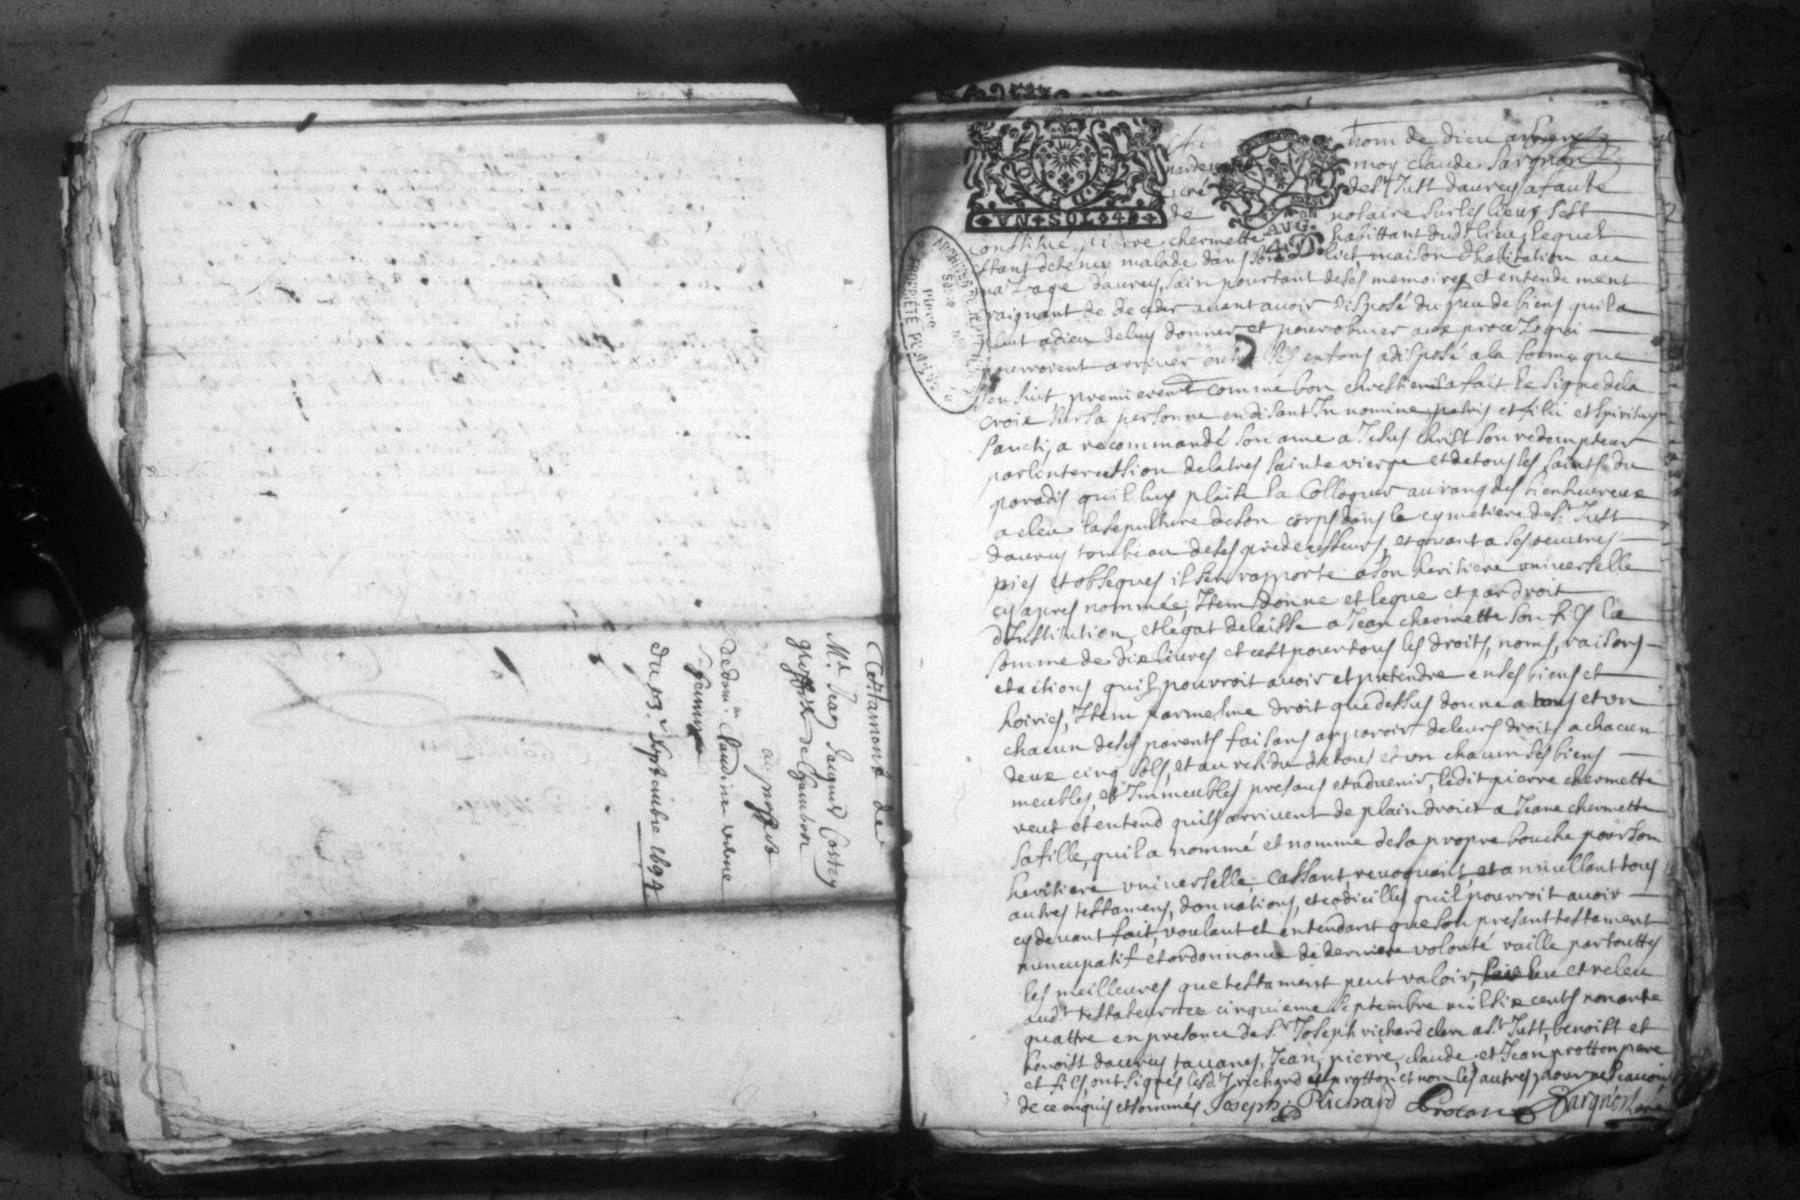 Testament de
Mr Jean Jaques Cossey
greffier de Chambon
au proffit
de dem.lle Claudine verne
sa femme
du 13.e Septembre 1694
Au nom de dieu
pardevant moy claude sargnon
curé de st Just daurey a faute
de notaire sur les lieux sest
constitué pierre chermette habittant dudt lieu, lequel
estant detenu malade dans son lict maison dhabitation au
village daurey, sain pourtant de ses memoires et entendement
craignant de deceder avant avoir disposé du peu de biens quil a
pleut a dieu de luy donner et pour obvier aux procez qui
pourroient arriver entre ses enfans a disposé a la forme que
sen suit, premierement comme bon chrestien a fait le signe de la
croix sur sa personne en disant In nomine patris et filii et spiritus
sancti, a recommandé son ame a Jesus christ son redempteur
par lintercession de la tres sainte vierge et de tous les saints du
paradis quil luy plaise la Colloquer au rang des bienheureux
a eleu la sepulture de son corps dans le cymetiere de st Just
daurey tombeau de ses predecesseurs, et quant a ses oeuvres
pies et obseques il sen rapporte a son heritiere universelle
cy apres nommée; Item donne et legue et par droit
dInstitution et légat delaisse a Jean chermette son fils la
somme de dix livres et cest pour tous les droits, noms, raisons
et actions quil pourroit avoir et pretendre en ses biens et
hoiries, Item par mesme droit que dessus donne a tous et un
chacun de ses parents faisans apparoir de leurs droits a chacun
deux cinq sols, et au residu de tous et un chacun ses biens
meubles, et Immeubles presans et advenir, ledit pierre chermette
veut et entend quils arrivent de plain droict a Jeane chermette
sa fille, quil a nommé et nomme de sa propre bouche pour son
heritiere universelle, cassant, revoquant, et annullant tous
autres testamens, donnations, et codicilles quil pourroit avoir
cy devant fait, voulant et entendant que son presant testament
nuncupatif et ordonnance de derniere volonté vaille par touttes
les meilleures que testament peut valoir, leu et releu
audt testateur ce cinquieme septembre mil six cents nonante
quattre en presance de Sr Joseph richard clerc a st Just, benoist et
benoist daurey tavanes, Jean, pierre, claude, et Jean protton pere
et fils, ont signés lesdt richard et protton, et non les autres pour ne scavoir
de ce enquis et sommés Joseph Richard Proton Sargnon curé
VN SOL 4 D
AUG. 4 D
ARCHIVES DÉPARTEMENTALES
PROPRIÉTÉ PUBLIQUE